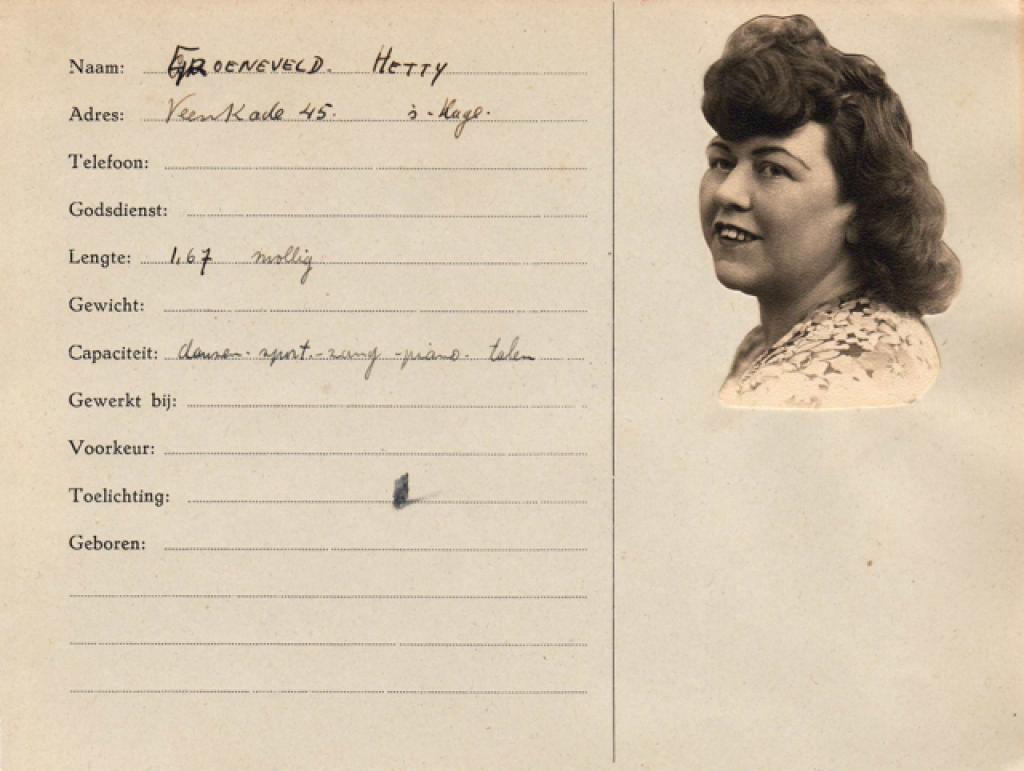 Naam: GROENEVELD. HETTY
Adres: Veenkade 45. 's-Hage.
Telefoon:
Godsdienst:
Lengte: 1,67 mollig
Gewicht:
Capaciteit: dansen - sport - zang - piano - talen
Gewerkt bij:
Voorkeur:
Toelichting:
Geboren: